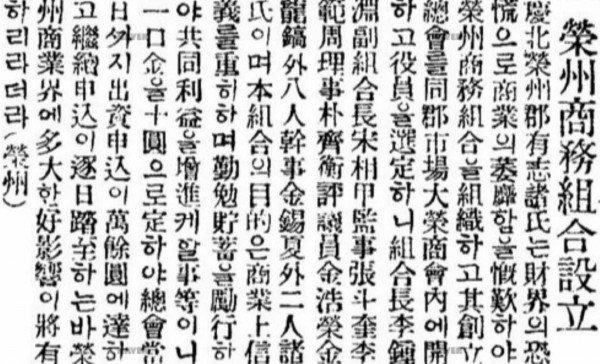 榮州商務組合設立
慶北榮州郡有志諸氏는財界의恐
慌으로商業의萎靡함을慨歎하야
榮州商務組合을組織하고其創立
總會를同郡市場大榮商會內에開
하고役員을選定하니組合長李鍾
淵副組合長宋相甲監事張斗奎李
範周理事朴齊衡評議員金浩榮金
龍鎬外八人幹事金錫夏外二人諸
氏이며本組合의目的은商業上信
義를重히하며勤勉貯蓄을勵行하
야共同利益을增進케할事等이니
一口金을十圓으로定하야總會當
日外지出資申込이萬餘圓에達하
고繼續申込이逐日踏至하는바榮
州商業界에多大한好影響이將有
하리라더라(榮州)